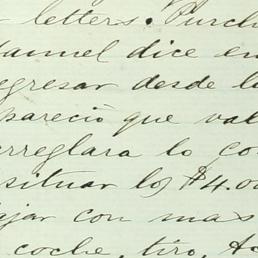 letters. Purch
Manuel dice en
egresar desde l
parecio que val
rreglara lo co
situar los $4.00
ajar con mas
coche, tiro, &c